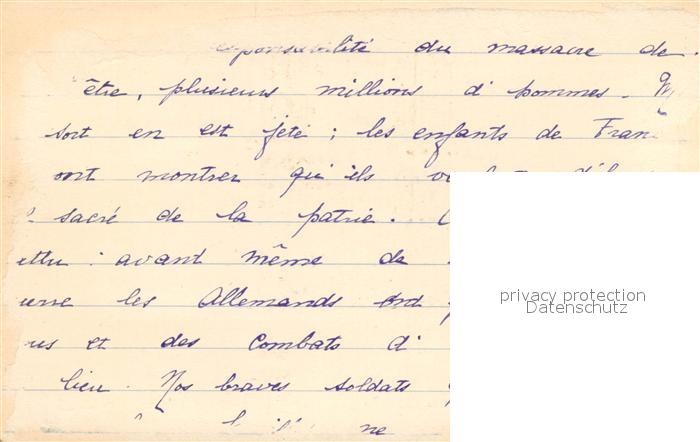 du massacre de
être, plusieurs millions d'hommes.
sort en est jeté ; les enfants de Fran
ont montrer qu'ils
sacré de la patrie.
avant même de
les Allemands ont
et des combats d'
lieu. Nos braves soldats
ne
privacy protection
Datenschutz